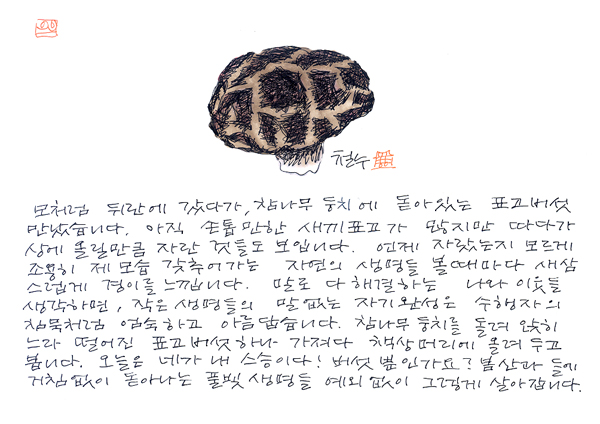 철수
모처럼 뒤란에 갔다가, 참나무 둥치에 돋아있는 표고버섯
만났습니다. 아직 손톱만한 새끼표고가 많지만 따다가
상에 올릴만큼 자란 것들도 보입니다. 언제 자랐는지 모르게
조용히 제 모습 갖추어가는 자연의 생명들 볼때마다 새삼
스럽게 경이를 느낍니다. 말로 다 해결하는 나와 이웃들
생각하면, 작은 생명들의 말없는 자기완성은 수행자의
침묵처럼 엄숙하고 아름답습니다. 참나무 둥치를 돌려 앉히
느라 떨어진 표고버섯 하나 가져다 책상머리에 올려 두고
봅니다. 오늘은 네가 내 스승이다! 버섯 뿐인가요? 봄 산과 들에
거침없이 돋아나는 풀빛 생명들 예외 없이 그렇게 살아갑니다.